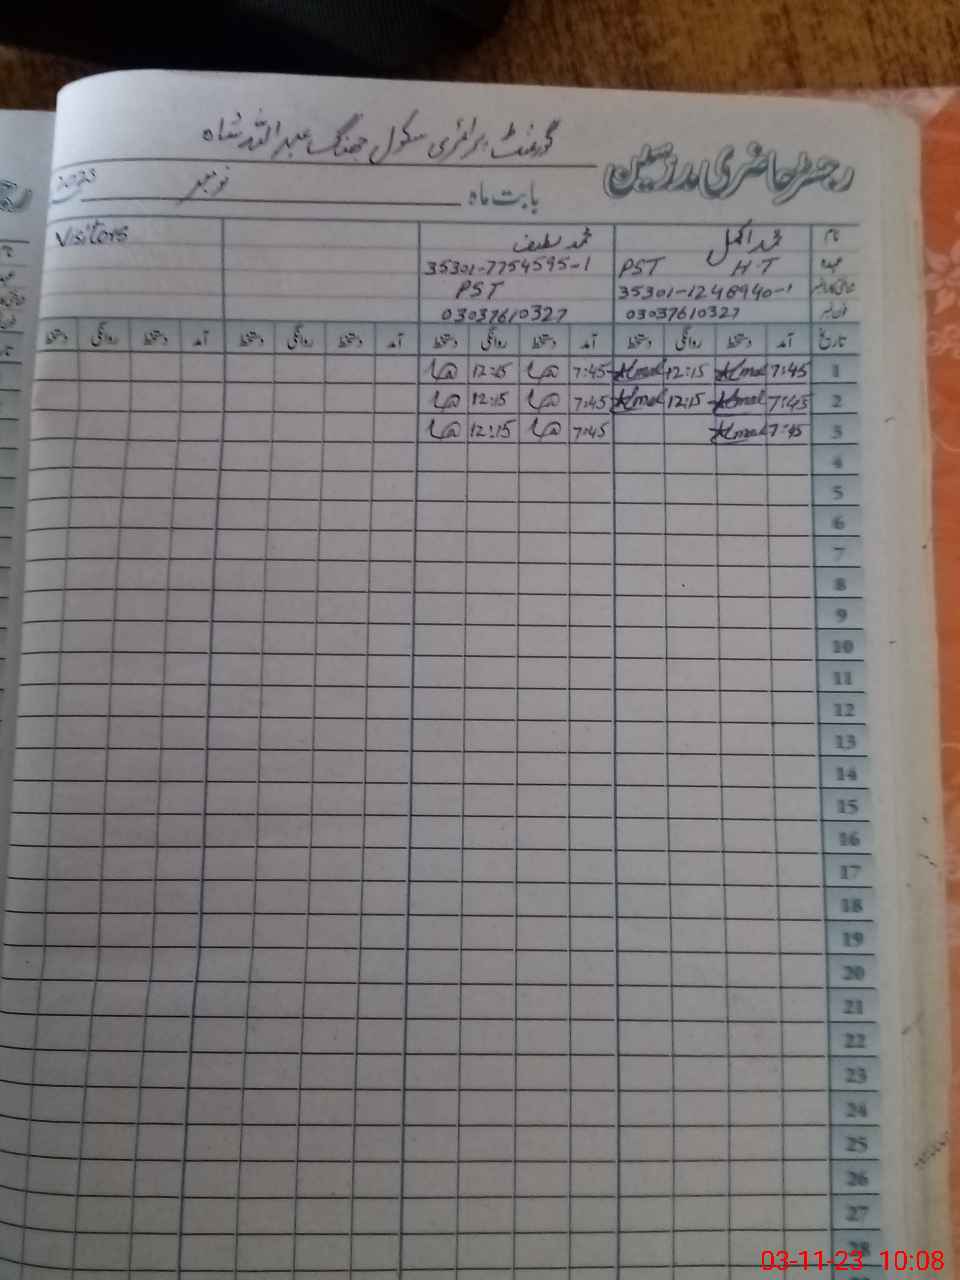 گورنمنٹ پرائمری سکول جھنگ عبداللہ شاہ
رجسٹر حاضری مدرسین
بابت ماہ نومبر 2023
نام محمد اکمل محمد لطیف Visitors
عہدہ H.T PST 35301-7754595-1
35301-1248940-1 PST
فون نمبر 03037610327 03037610327
تاریخ آمد دستخط روانگی دستخط آمد دستخط روانگی دستخط آمد دستخط روانگی دستخط آمد دستخط روانگی دستخط
1 7:45 Akmal 12:15 Akmal 7:45 12:15
2 7:45 Akmal 12:15 Akmal 7:45 12:15
3 7:45 Akmal 7:45 12:15
4
5
6
7
8
9
10
11
12
13
14
15
16
17
18
19
20
21
22
23
24
25
26
27
28
03-11-23 10:08